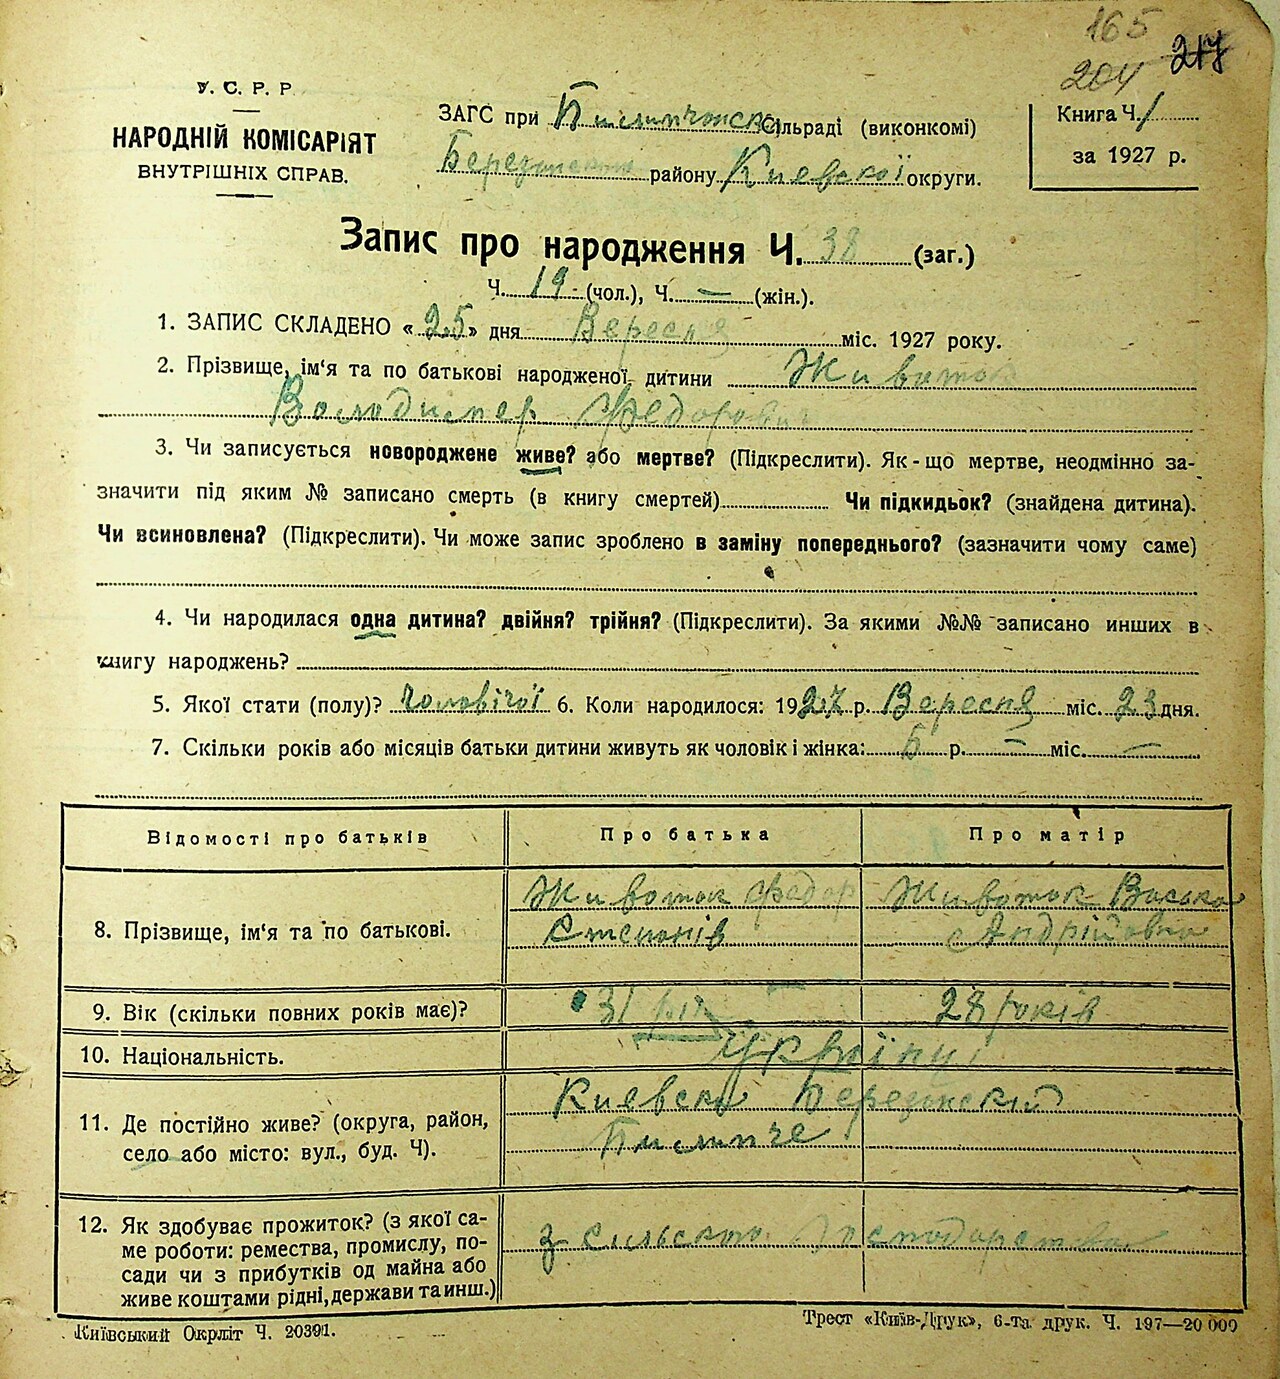 165
204 217
У. С. Р. Р
НАРОДНІЙ КОМІСАРІЯТ
ВНУТРІШНІХ СПРАВ.
ЗАГС при сільраді (виконкомі)
району Киевської округи.
Книга Ч. 1
за 1927 р.
Запис про народження Ч. 38 (заг.)
Ч. 19 (чол.), Ч. — (жін.).
1. ЗАПИС СКЛАДЕНО «25» дня Вересня міс. 1927 року.
2. Прізвище, ім‘я та по батькові народженої дитини Животок
Володимер Федорович
3. Чи записується новороджене живе? або мертве? (Підкреслити). Як-що мертве, неодмінно за-
значити під яким № записано смерть (в книгу смертей) Чи підкидьок? (знайдена дитина).
Чи всиновлена? (Підкреслити). Чи може запис зроблено в заміну попереднього? (зазначити чому саме)
4. Чи народилася одна дитина? двійня? трійня? (Підкреслити). За якими №№ записано инших в
книгу народжень?
5. Якої стати (полу)? чоловічої 6. Коли народилося: 1927 р. Вересня міс. 23 дня.
7. Скільки років або місяців батьки дитини живуть як чоловік і жінка: 5 р. — міс. —
Відомості про батьків Про батька Про матір
8. Прізвище, ім‘я та по батькові. Животок Федор Животок Васька
Степанів Андрійовна
9. Вік (скільки повних років має)? 31 28 років
10. Національність. Українці
11. Де постійно живе? (округа, район, Киевска Березанский
село або місто: вул., буд. Ч).
12. Як здобуває прожиток? (з якої са-
ме роботи: ремества, промислу, по- з сільского господарства
сади чи з прибутків од майна або
живе коштами рідні, держави та инш.)
Київський Окрліт Ч. 20391. Трест «Київ-Друк», 6-та друк. Ч. 197—20 000